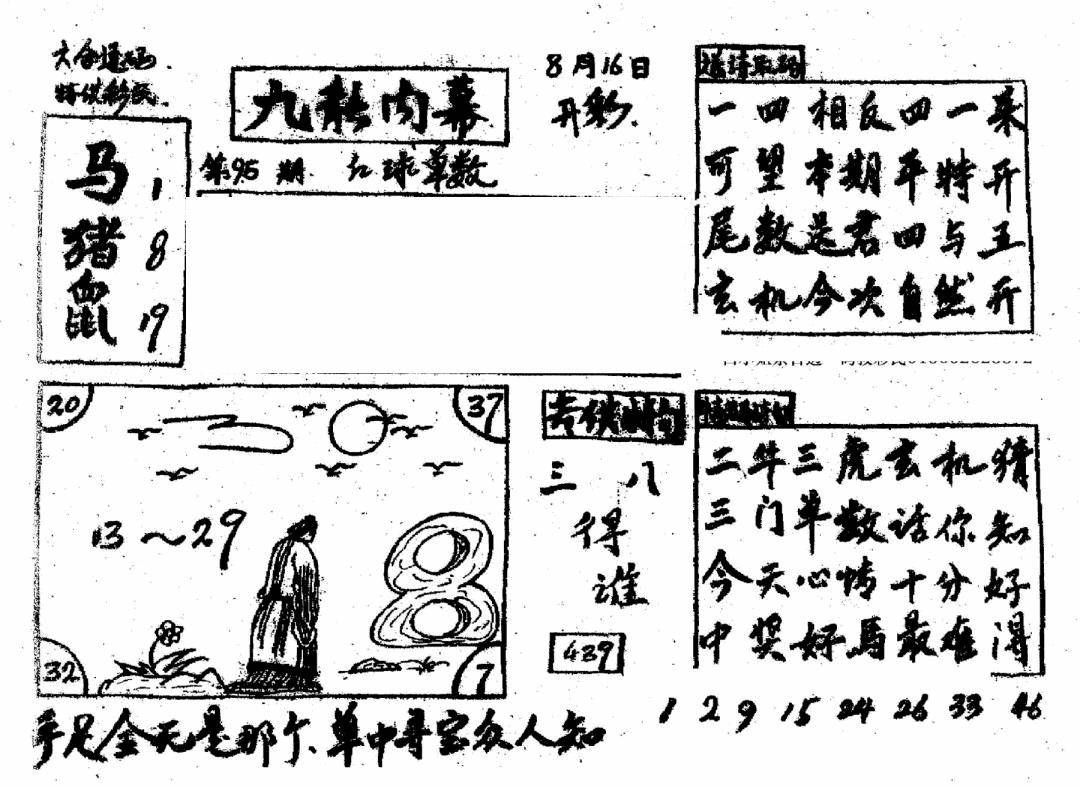 六合透码
特供彩民
九龍内幕
8月16日
开彩.
第95期 红球单数
马 1
猪 8
鼠 19
一四相反四一来
可望本期平特开
尾数是君四与五
玄机今次自然开
20
37
13～29
32
7
三八
得
谁
439
二牛三虎玄机精
三门单数话你知
今天心情十分好
中奖好马最难得
1 2 9 15 24 26 33 46
手足金天是那个、单中寻宝众人知